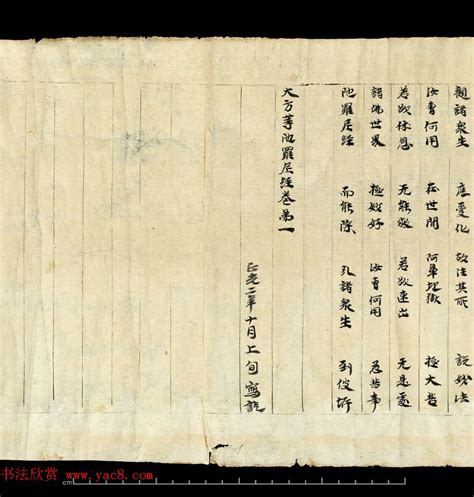 觀諸衆生 應受化 其所 說妙法
汝曹何用 在世間 阿鼻地獄 極大苦
若欲休息 无能救 若欲速出 无是處
諸佛世界 極妙好 汝曹何用 為苦事
陀羅尼經 而能除 諸衆生 到彼岸
大方等陀羅尼經卷第一
正光二年十月上旬寫訖
书法欣赏
www.yac8.com
cm